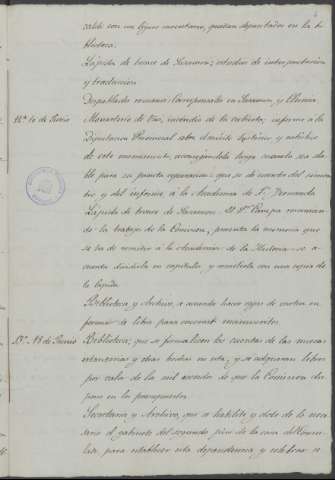 calde con un ligero inventario, quedan depositados en la bi-
blioteca.
Lápida de bronce de Herrera; estudios de interpretación
y traducción
Despoblados romanos. Corresponsales en Herrera, y Plasencia
12ª 10 de Junio
Monasterio de Oña, incendio de la cubierta; informe a la
Diputacion Provincial sobre el mérito histórico y artístico
de este monumento, encargándole haga cuanto sea da-
ble para su pronta reparacion: que se dé cuenta del sinies-
tro y del informe á la Academia de Sn. Fernando
Lápida de bronce de Herrera. El Sr. encargado
de los trabajos de la Comision, presenta la memoria que
se ha de remitir á la Academia de la Historia: se a-
cuerda dividirla en capítulos y remitirla con una copia de
la lápida.
Biblioteca y Archivo, se acuerda hacer cajas de carton en
forma de libro para conservar manuscritos.
13ª 18 de Junio
Biblioteca; que se formalicen las cuentas de las nuevas
estanterias y otras hechas en esta; y se adquieran libros
por valor de los mil escudos de que la Comision dis-
pone en los presupuestos.
Secretaria y Archivo, que se habilite y dote de lo nece-
sario el gabinete del segundo piso de la casa del Consu-
lado para establecer esta dependencia y celebrar se